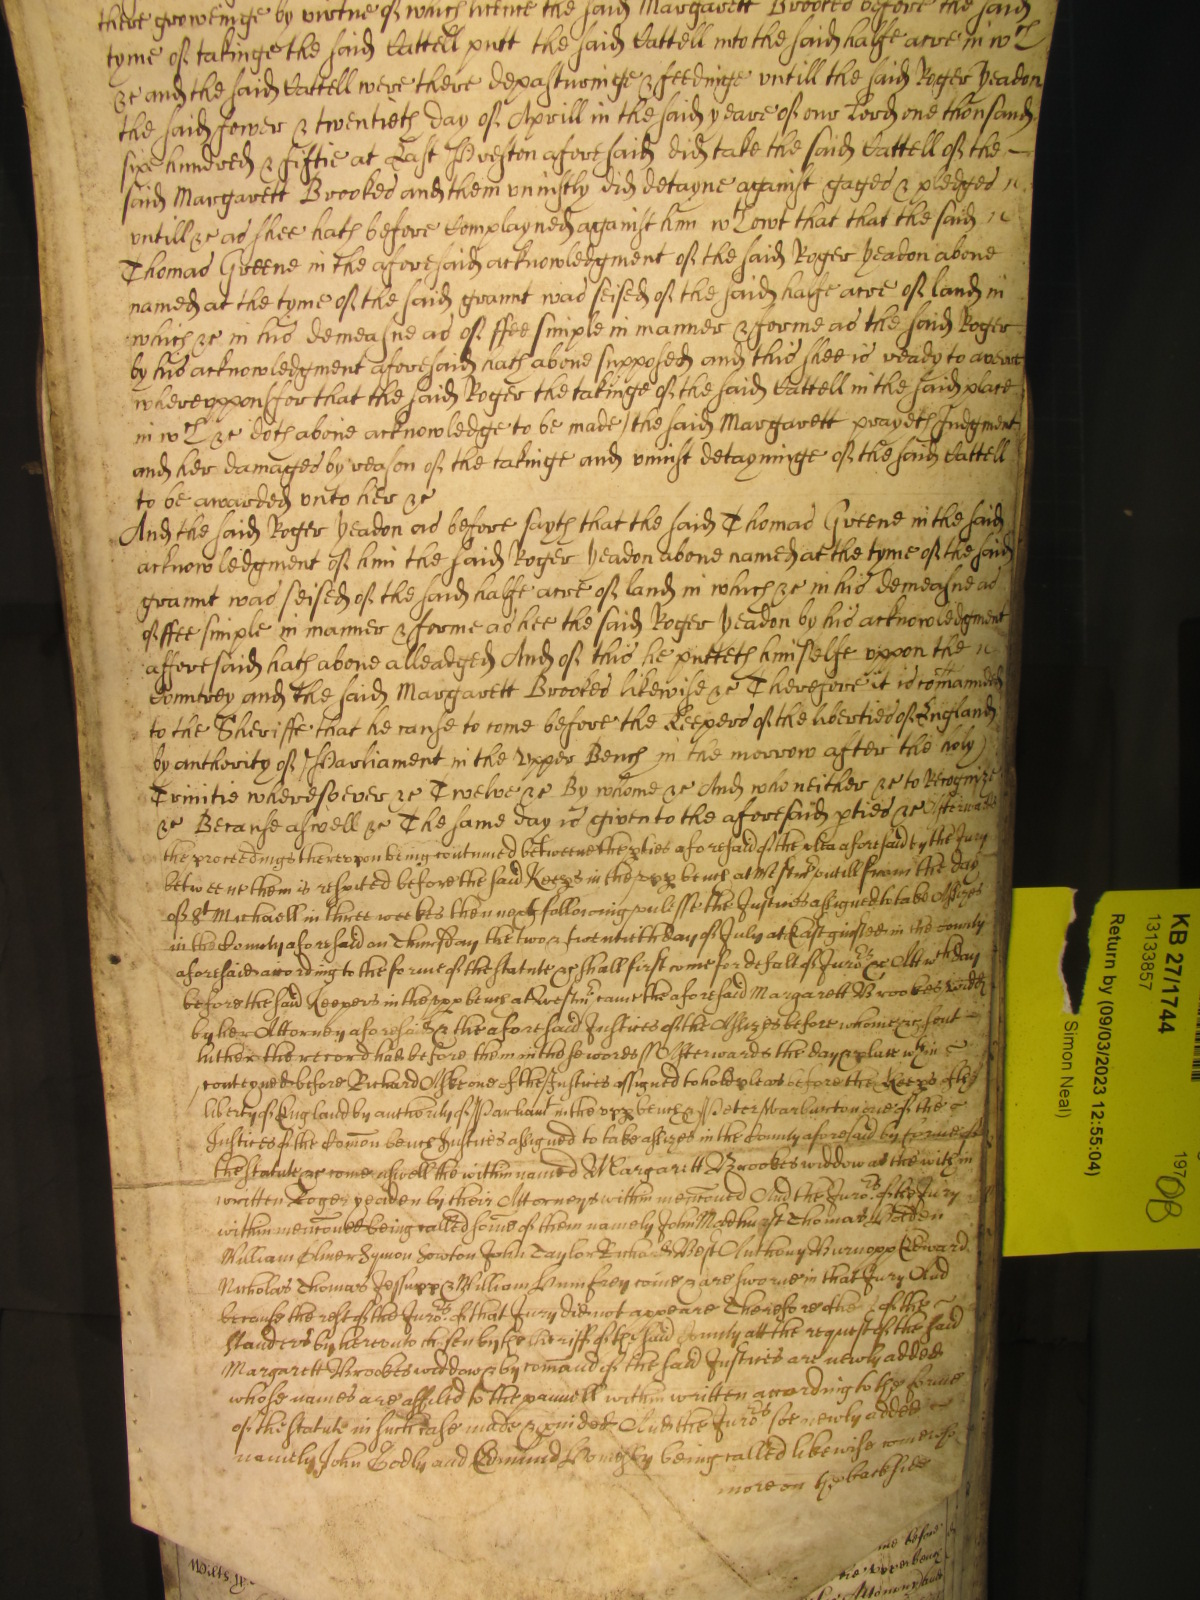 there groweinge by virtue of which licence the said Margarett Brookes before the said
tyme of takinge the said Cattell putt the said Cattell into the said halfe acre in wch
&c and the said Cattell were there depasturinge & feedinge untill the said Roger Yeadon
the said fower & twentieth day of Aprill in the said yeare of our Lord one thousand
six hundred & fiftie at East Preston aforesaid did take the said Cattell of the
said Margarett Brookes and them uniustly did detayne against gages & pledges
untill &c as shee hath before complayned against him wthout that that the said
Thomas Greene in the aforesaid acknowledgment of the said Roger Yeadon above
named at the tyme of the said graunt was seised of the said halfe acre of land in
which &c in his demeasne as of ffee simple in manner & forme as the said Roger
by his acknowledgment aforesaid hath above supposed and this shee is ready to averre
whereuppon (for that the said Roger the takinge of the said Cattell in the said place
in wch &c doth above acknowledge to be made) the said Margarett prayeth Judgment
and her damages by reason of the takinge and uniust detayninge of the said Cattell
to be awarded unto her &c
And the said Roger Yeadon as before sayth that the said Thomas Greene in the said
acknowledgment of him the said Roger Yeadon above named at the tyme of the said
graunt was seised of the said halfe acre of land in which &c in his demeasne as
of ffee simple in manner & forme as hee the said Roger Yeadon by his acknowledgment
afforesaid hath above alleadged And of this he putteth himselfe uppon the
Countrey and the said Margarett Brookes likewise &c Therefore it is comanded
to the Sheriffe that he cause to come before the Keepers of the liberties of England
by authority of Parliament in the Upper Bench in the morrow after the holy
Trinitie wheresoever &c Twelve &c By whome &c And who neither &c to Recognize
&c Because aswell &c The same day is given to the aforesaid pties &c Afterwards
the proceedings thereupon being continued betweene the pties aforesaid of the plea aforesaid by the Jury
betweene them is respited before the said Keeps in the upp bench at Westmr untill from the day
of St Michaell in three weekes then next following unlesse the Justices assigned to take Assizes
in the County aforesaid on Thursday the two & twentieth day of July at Eastgrinsted in the County
aforesaid according to the forme of the statute &c shall first come for default of Jurors &c Att wch day
before the said Keepers in the upp bench at Westmr came the aforesaid Margarett Brookes widdow
by her Attorney aforesaid & the aforesaid Justices of the Assizes before whome &c sent
hither the record had before them in these words Afterwards the day & place wthin
conteyned before Richard Aske one of the Justices assigned to hold pleas before the Keeps of the
liberty of England by authority of Parliamt in the upp bench & Peter Warburton one of the
Justices of the Comon bench Justices assigned to take assizes in the County aforesaid by forme of
the statute &c come aswell the within named Margarett Brookes widdow as the within
written Roger Yeaden by their Attorneys within menconed And the Jurors of the Jury
within menconed being called some of them namely John Madhurst Thomas
William Olmer Symon Sowton John Taylor Richard West Anthony Burnopp Edward
Nicholas Thomas Jessupp & William Humfrey come & are sworne in that Jury And
because the rest of the Jurors of that Jury did not appeare Therefore others of the
standers by hereunto chosen by the sheriff of the said County att the request of the said
Margarett Brookes widdow & by comand of the said Justices are newly added
whose names are affiled to the pannell within written according to the forme
of the statute in such case made & pvided And the Jurors soe newly added
namely John Godly and Edmund being called likewise come &c
more on the backside
Wilts
before
Upper bench
KB 27/1744
13133857
Return by (09/03/2023 12:55:04)
Simon Neal)